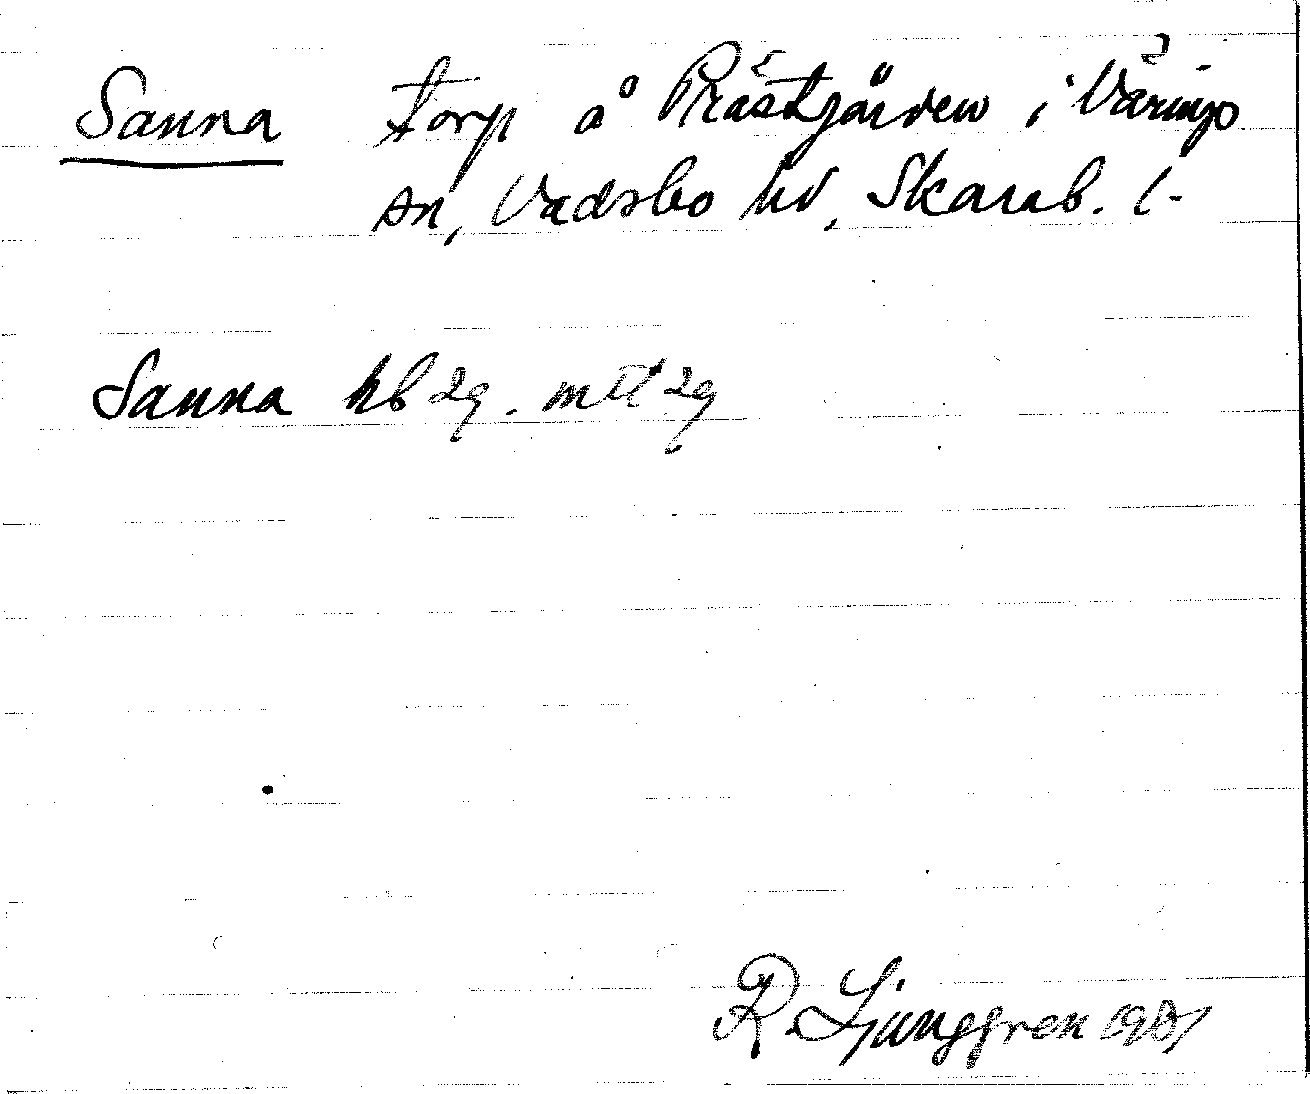 Sanna torp å Prästgården i Värings
sn, Vadsbo hd, Skarab. l.
Sanna hb 29. mtl 29
R. Ljunggren